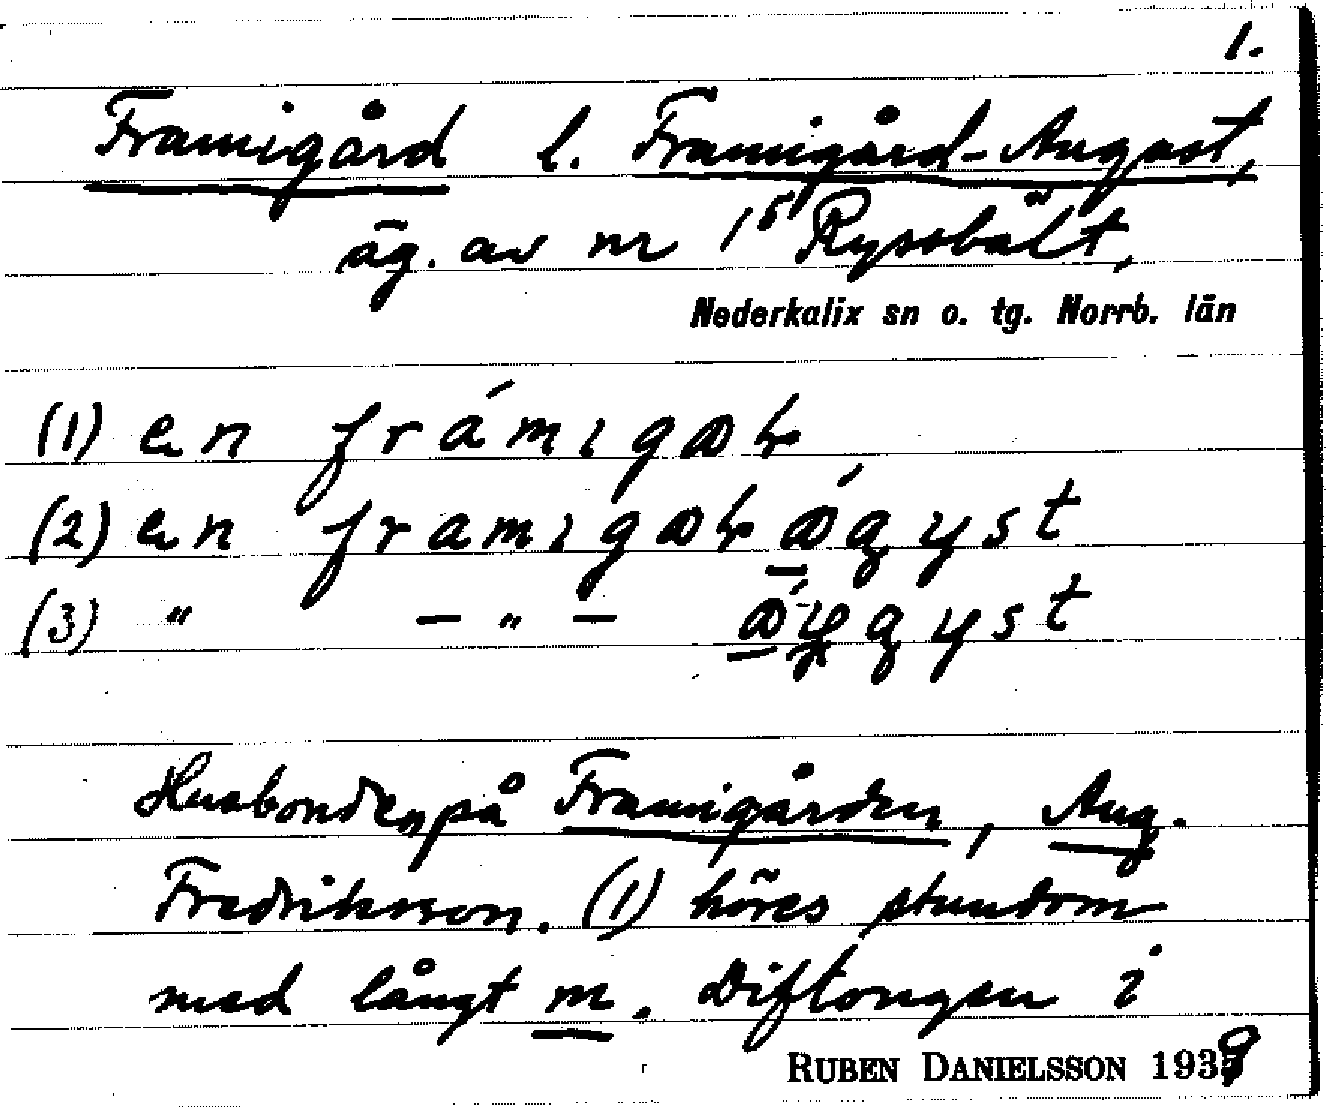 1.
Framigård l. Framigård-August,
äg. av nr 1⁵ Ryssbält,
Nederkalix sn o. tg. Norrb. län
(1) en frámıgaƿ
(2) en framıgaƿ ágyst
(3) " – " – gyst
Husbonden på Framigården, Aug.
Fredriksson. (1) höres stundom
med långt m. Diftongen i
RUBEN DANIELSSON 1939